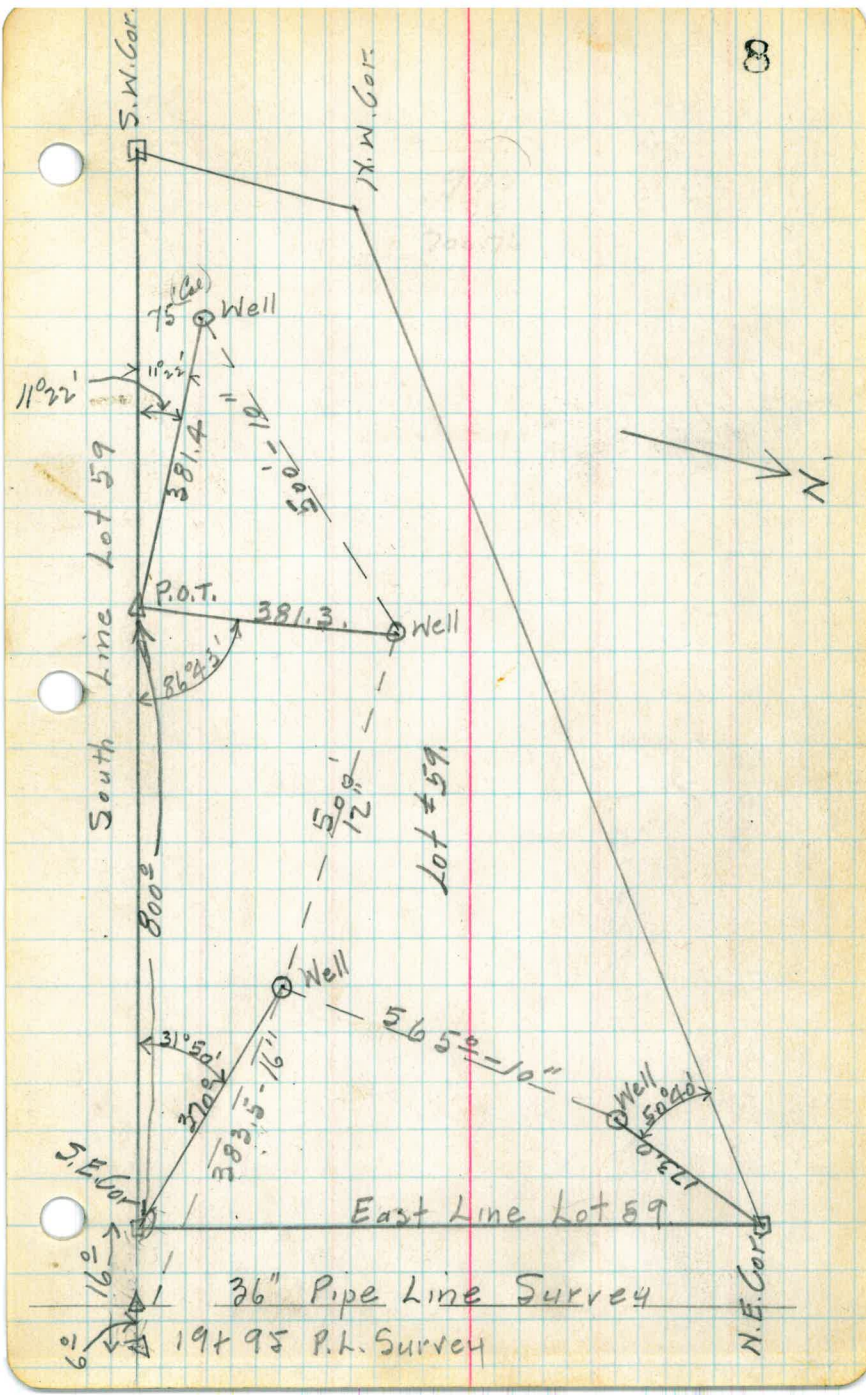 8
S.W.Cor.
N.W.Cor.
75' (Cal)
Well
11°22'
11°22'
381.4
500' - 10"
South Line Lot 59
P.O.T.
381.3.
Well
86°43'
N.
800⁰
500'
12"
Lot #59.
Well
31°50'
370⁰
383.5-16"
565⁰-10"
Well
50°40'
173.0
S.E.Cor
16⁰
East Line Lot 59.
N.E.Cor.
36" Pipe Line Survey
6⁰
19+95 P.L. Survey